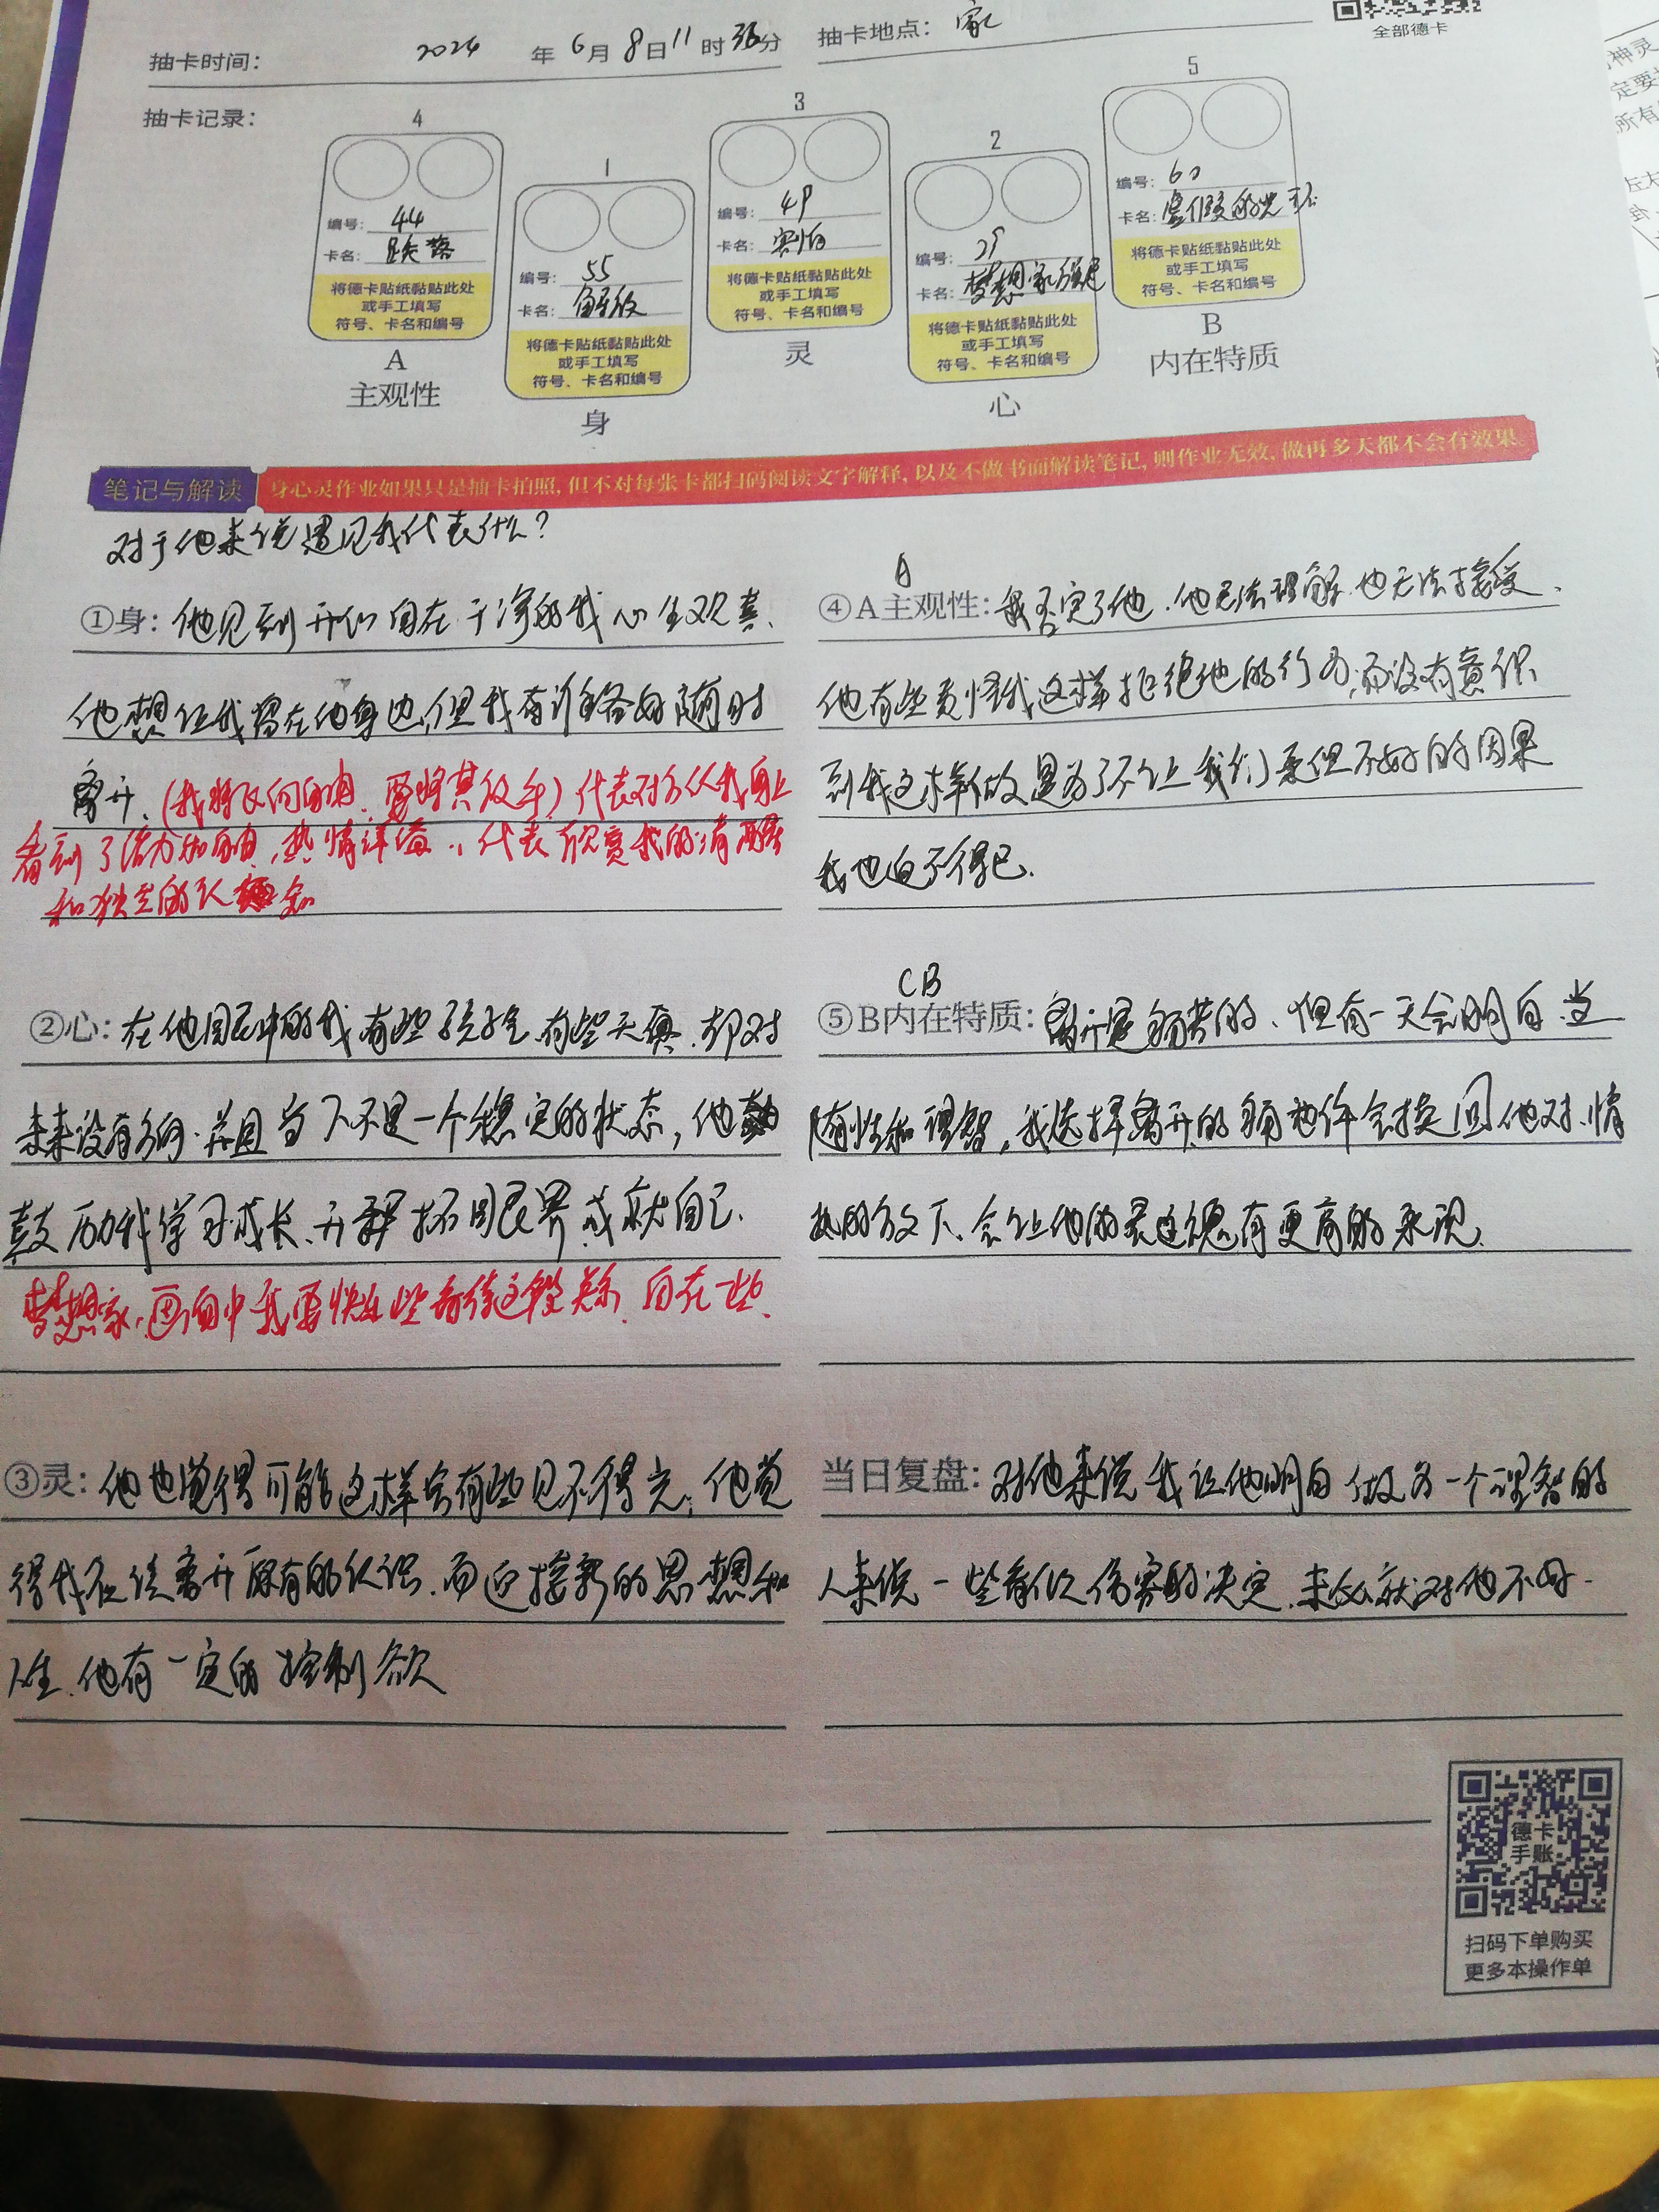 全部德卡
抽卡时间： 2024 年 6 月 8 日 11 时 分 抽卡地点： 家
抽卡记录：
4
编号： 44
卡名： 跌落
将德卡贴纸黏贴此处
或手工填写
符号、卡名和编号
A
主观性
1
编号： 55
卡名： 解放
将德卡贴纸黏贴此处
或手工填写
符号、卡名和编号
身
3
编号： 49
卡名： 害怕
将德卡贴纸黏贴此处
或手工填写
符号、卡名和编号
灵
2
编号：
卡名： 梦想家
将德卡贴纸黏贴此处
或手工填写
符号、卡名和编号
心
5
编号： 60
卡名： 虚假的光环
将德卡贴纸黏贴此处
或手工填写
符号、卡名和编号
B
内在特质
笔记与解读 身心灵作业如果只是抽卡拍照，但不对每张卡都扫码阅读文字解释，以及不做书面解读笔记，则作业无效，做再多天都不会有效果。
对于他来说遇见我代表什么？
①身：他见到开似自在干净的我心生欢喜、
他想让我留在他身边，但我有准备好随时
离开、（我将飞向自由、要将其放手）代表对方从我身上
看到了活力和自由，热情洋溢，代表欣赏我的清醒
和独立的认知
②心：在他眼中的我有些孩子气、有些天真、却对
未来没有方向，并且当下不是一个稳定的状态，他
鼓励我学习成长、开拓眼界成就自己、
梦想家，画面中我要快乐些看待这段关系、自在一些、
③灵：他也觉得可能这样会有些见不得光，他觉
得我应该离开原有的认识，而迎接新的思想和
人生、他有一定的控制欲
A
④A主观性：我否定了他，他无法理解也无法接受、
他有些责怪我这样拒绝他的行为，而没有意识
到我这样做是为了不让我们承担不好的因果
我也迫不得已、
CB
⑤B内在特质：离开是痛苦的、但有一天会明白、当
随性和理智，我选择离开的 会换回他对情
执的放下、会让他的灵魂有更高的
当日复盘：对他来说我让他明白做为一个理智的
人来说一些看似伤害的决定、未必就对他不好.
德卡
手账
扫码下单购买
更多本操作单